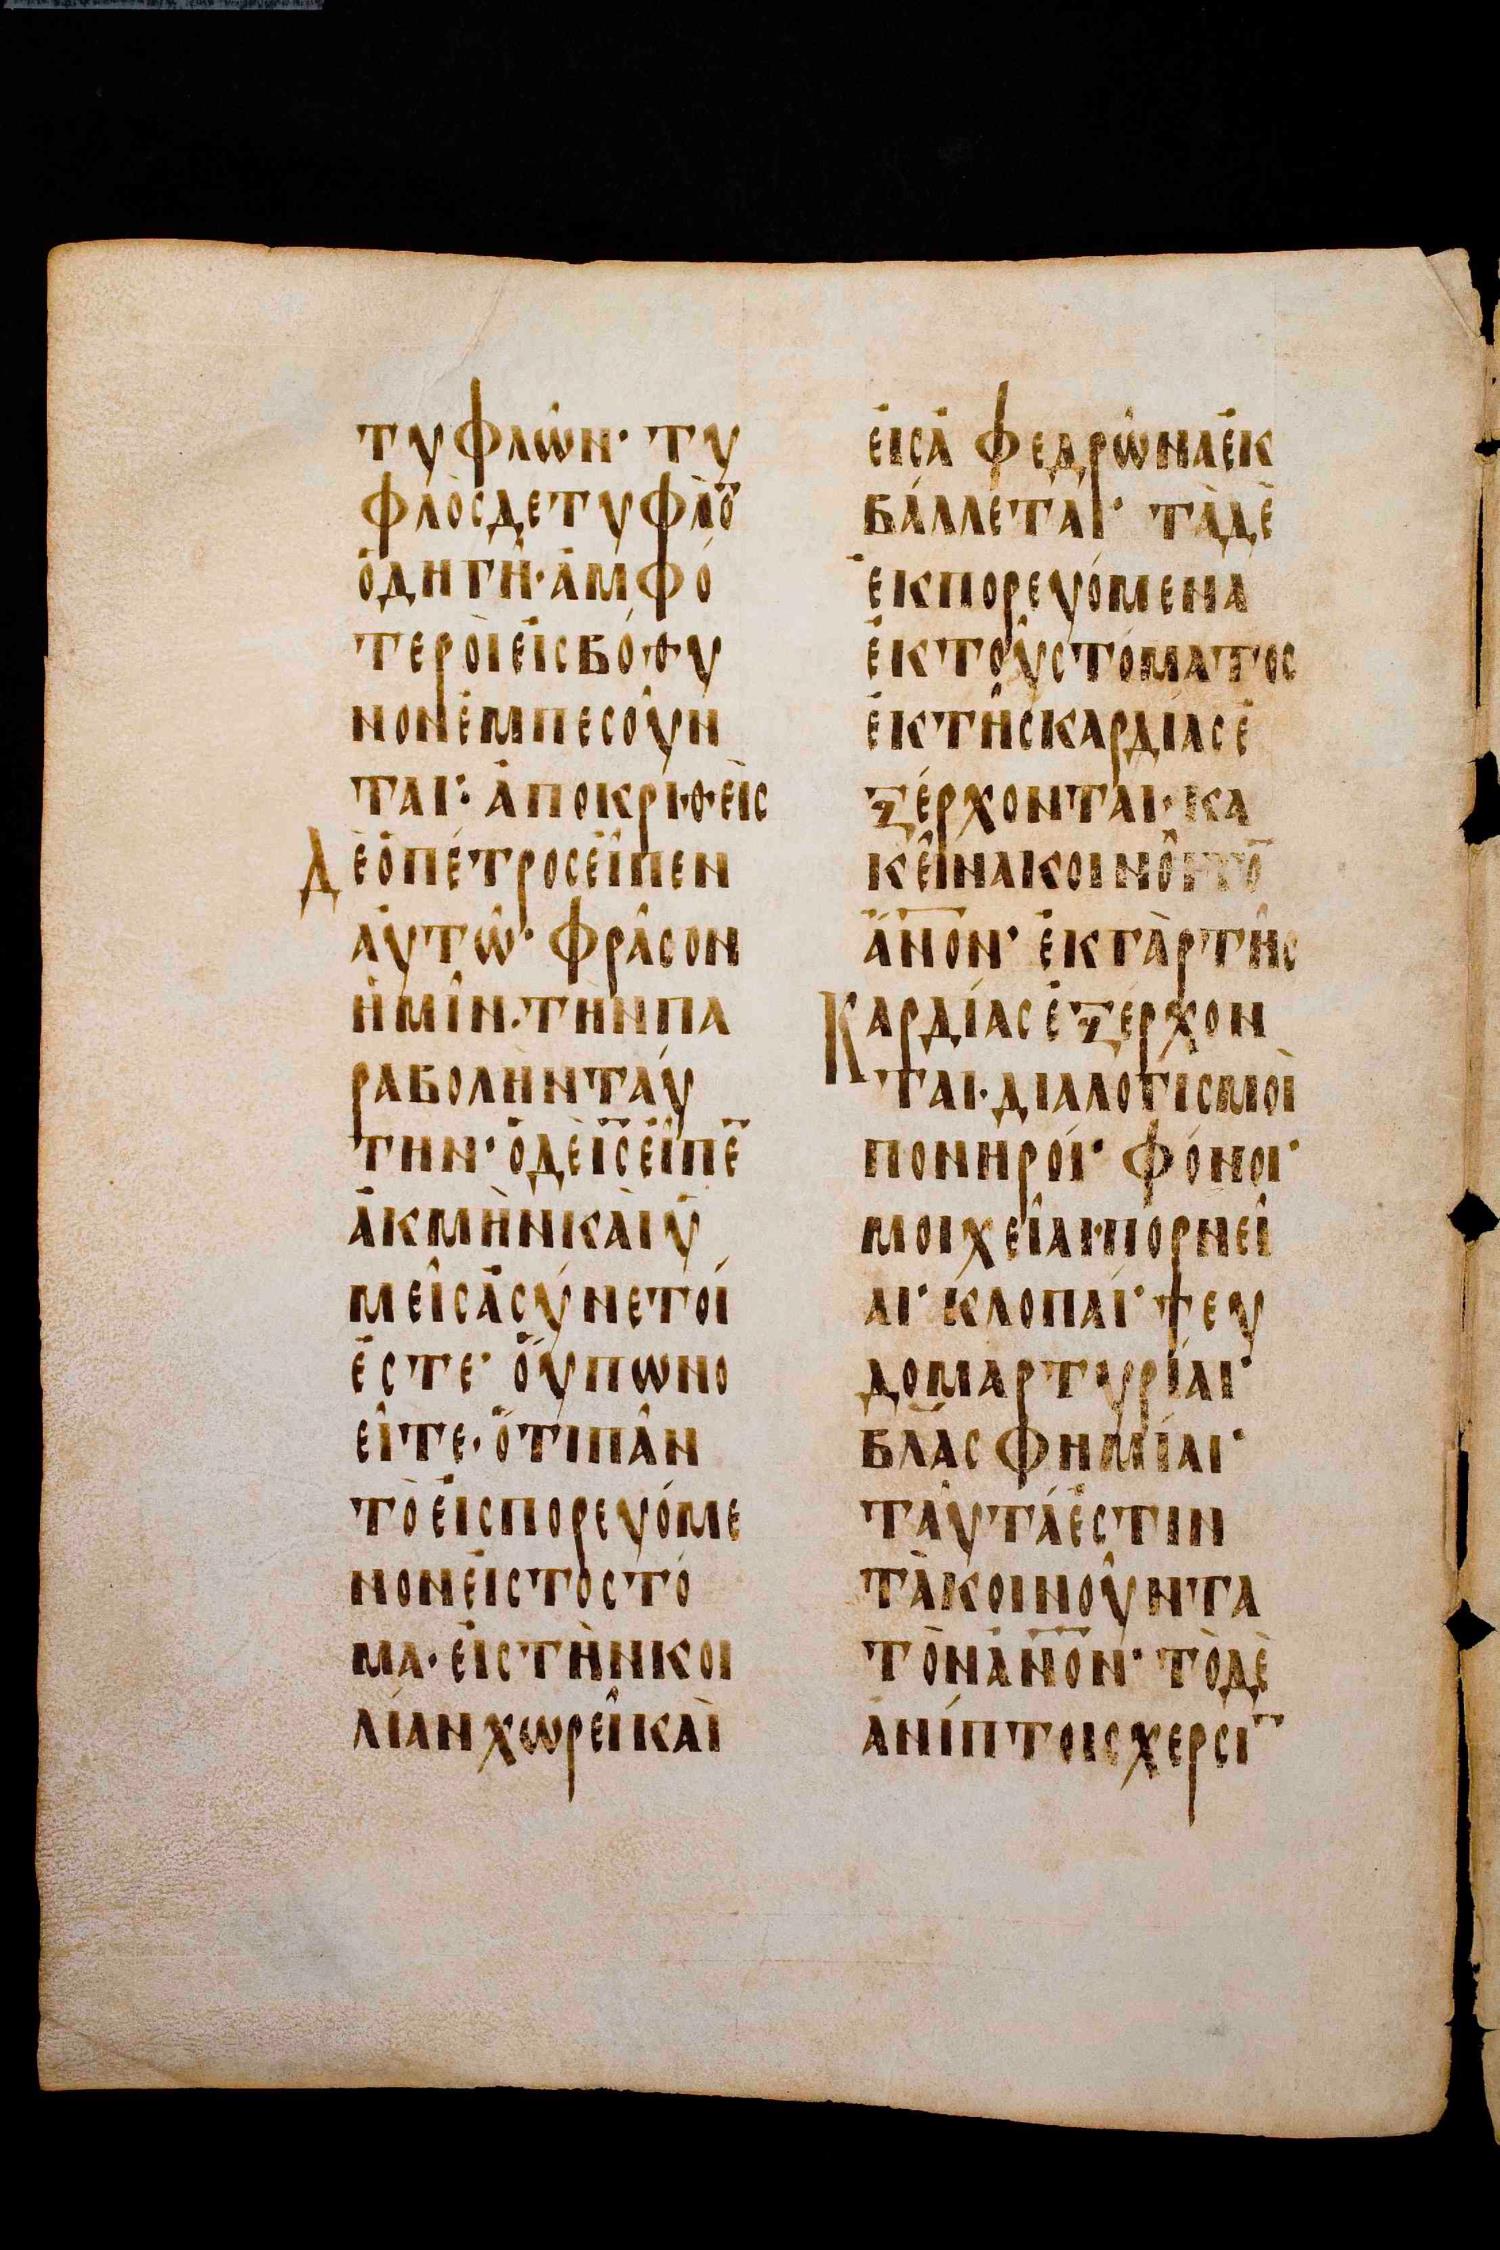 τυφλῶν· τυ
φλὸσδετυφλὸ̅
ὁδηγῆ·ἀμφό
τεροὶεἰσβόθυ
νονἐμπεσοῦν
ται· ἀποκριθεὶσ
Δὲὁπέτροσεἶπεν
αὐτῶ· φράσον
ἡμῖν·τὴνπα
ραβολὴνταύ
την· ὁδὲι̅σ̅εἶπε̅
ἀκμὴνκαὶὑ
μεῖσἀσύνετοί
ἐστε· οὔπωνο
εῖτε·ὅτιπᾶν
τὸεἰσπορευόμε
νονεἰστοστό
μα·εἰστὴνκοι
λίανχωρεῖκαὶ
εἰσἀφεδρῶναἐκ
βάλλεται· τὰδὲ
ἐκπορευόμενα
ἐκτοῦστόματοσ
ἐκτῆσκαρδίασἐ
ξέρχονται·κα
κεῖνακοινοῖτὸ̅
ἄν̅ο̅ν· ἐκγὰρτῆσ
Καρδίασἐξέρχον
ται·διαλογισμοὶ
πονηροί· φόνοι·
μοιχεῖαι·πορνεῖ
αι· κλοπαί· ψευ
δομαρτυρίαι·
βλασφημίαι·
ταῦτάἐστιν
τὰκοινοῦντα
τὸνἄν̅ο̅ν· τὸδὲ
ἀνίπτοισχερσὶ̅